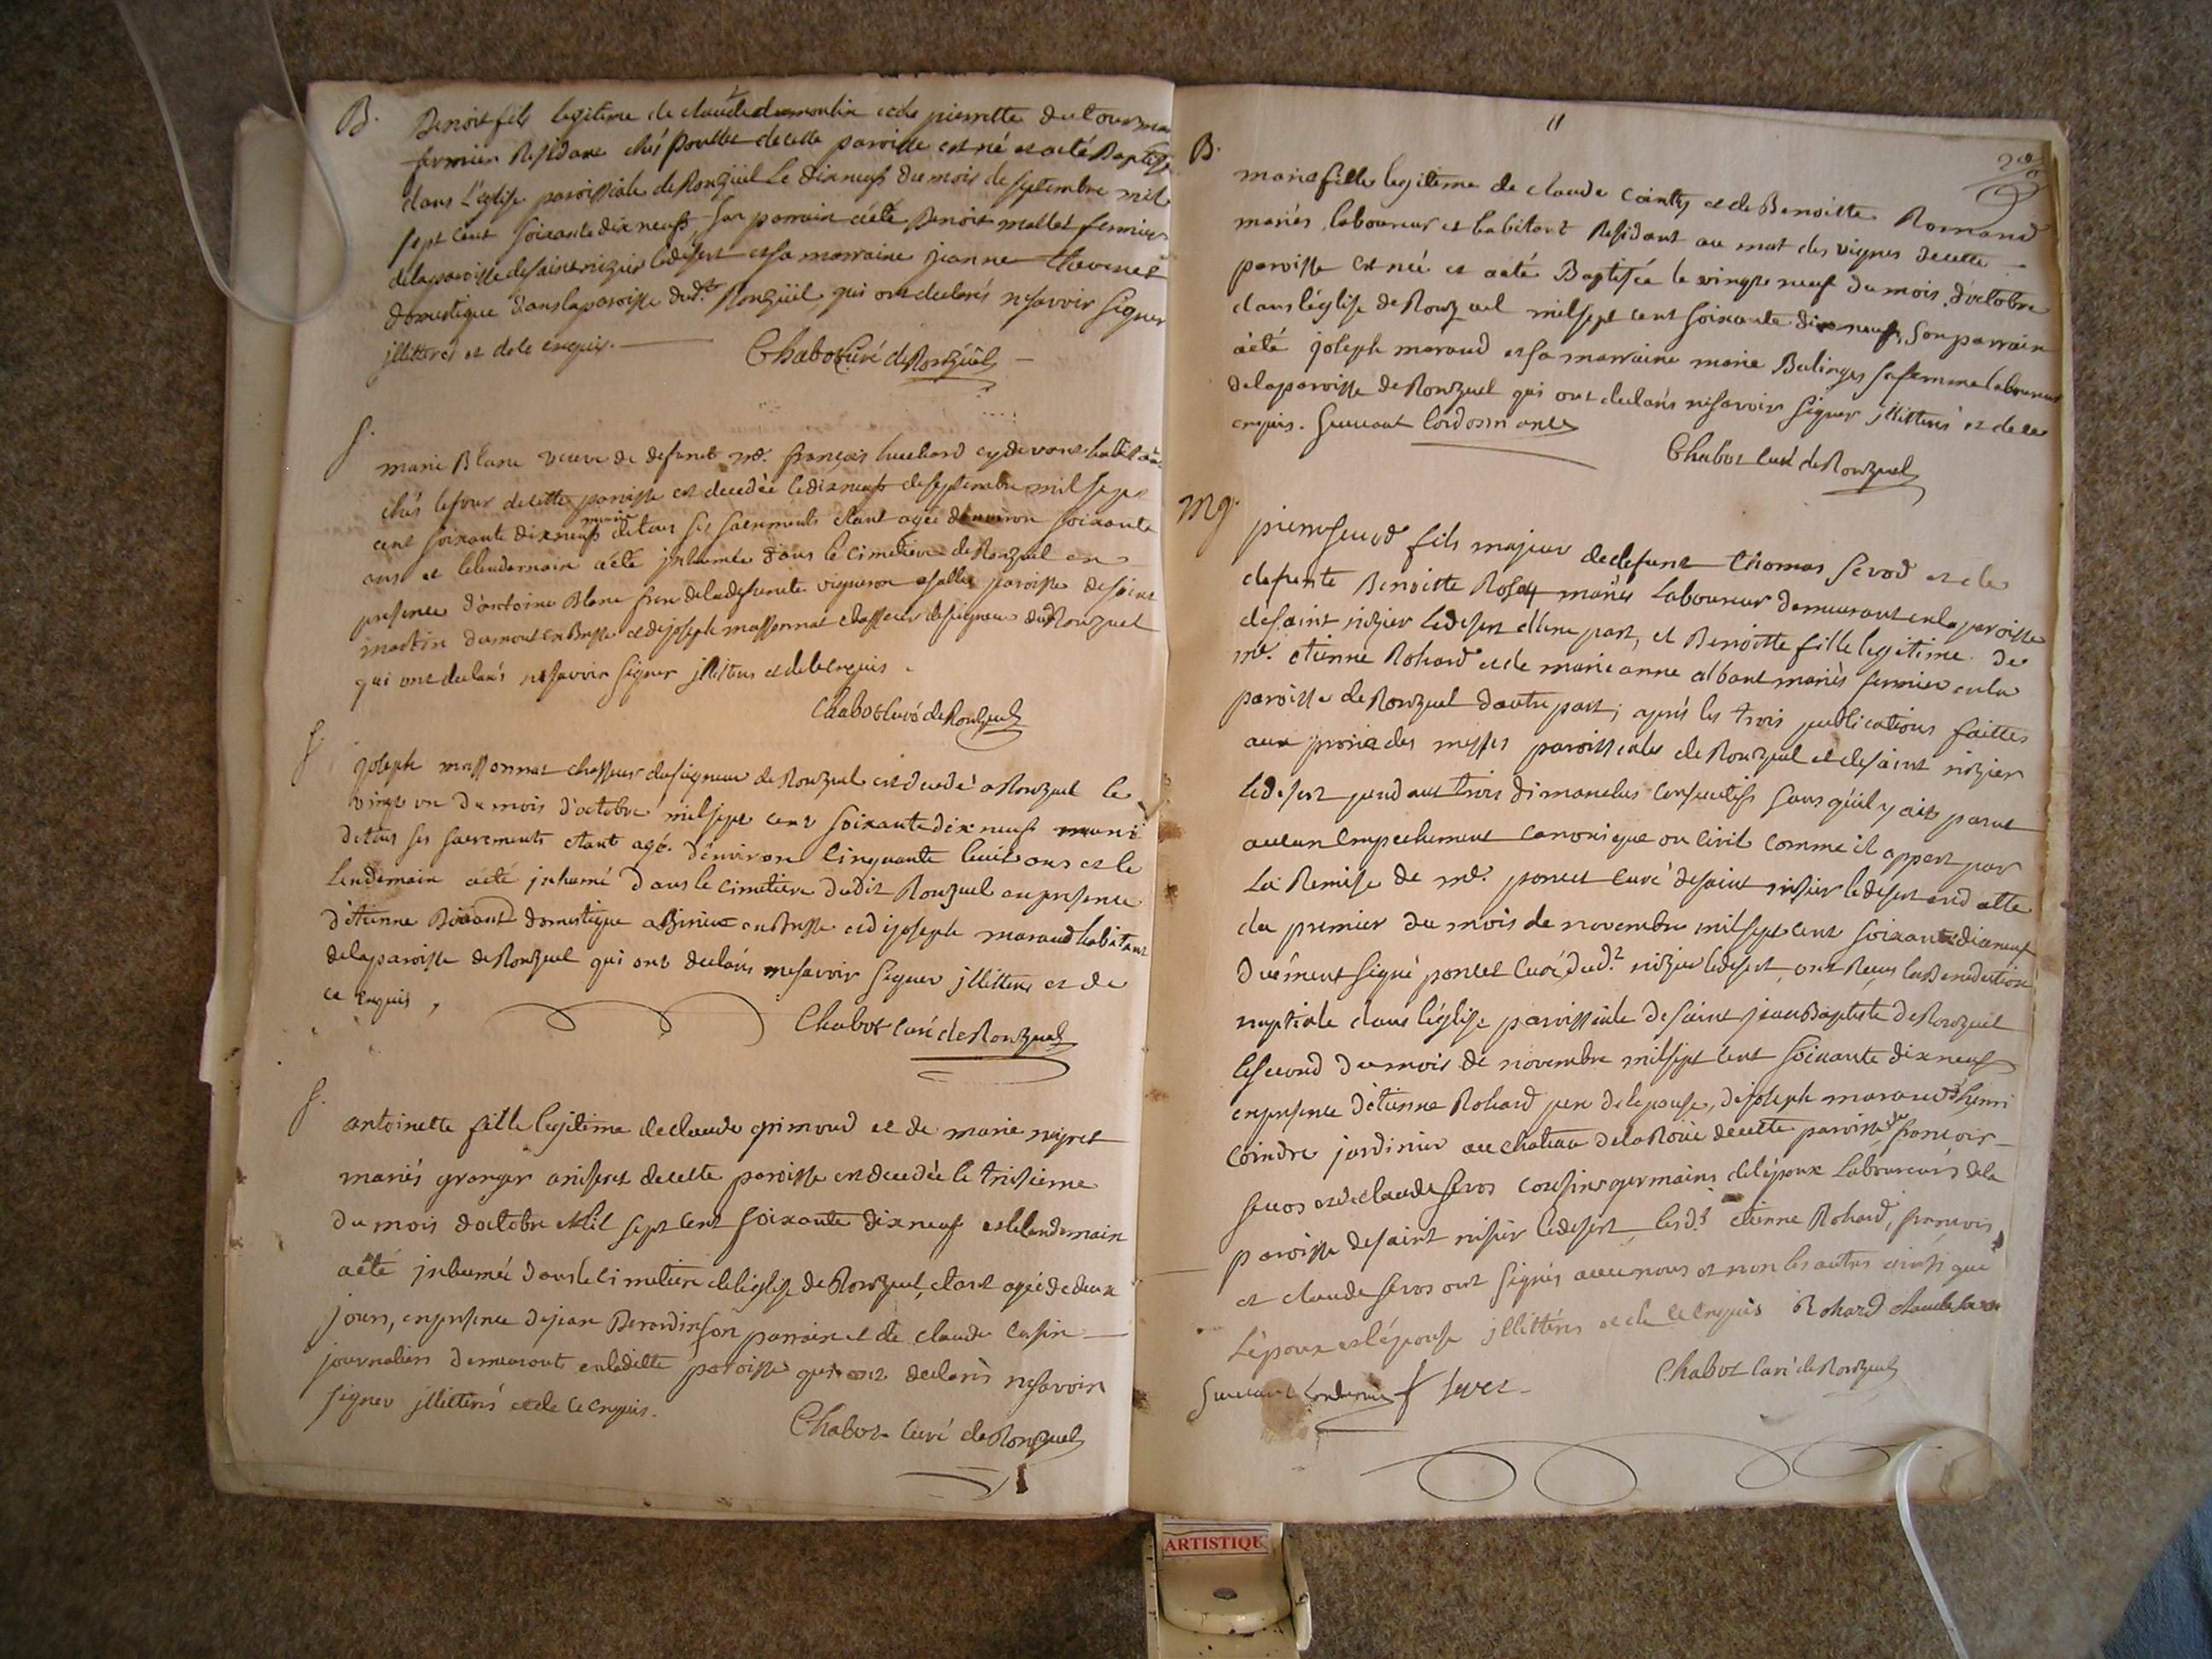 B.
Benoit fils legitime de claude dumoulin et de pierrette
fermier Residant chés poullet de cette paroisse est né et a eté Baptisé
dans L'eglise paroissiale de Ronzüel Le dixneuf du mois de septembre mil
sept cent soixante dix neuf, son parrain a été Benoit mallet fermier
de la paroisse de saint nizier ledesert et sa marraine jeanne thevenet
domestique dans la paroisse dud.t Ronzüel, qui ont declarés ne savoir signer
jllitteres et de ce enquis.
Chabot Curé de Ronzüel
S.
marie Blanc veuve de defunct md. françois huchard cy devant habitant
chés lefour de cette paroisse est decedée le dixneuf de septembre mil sept
cent soixante dix neuf munie de tous ses sacrements etant agée d'environ soixante
ans et le lendemain a été jnhumée dans le cimetiere de Ronzuel en
presence d'antoine Blanc frere de la defuncte vigneron a paroisse de saint
martin dumont en Bresse et de joseph massonnat chasseur du seigneur dud Ronzuel
qui ont declarés ne savoir signer jllitterés et de ce enquis.
Chabot Curé de Ronzuel
S.
joseph massonnat chasseur du seigneur de Ronzuel est decedé a Ronzuel le
vingt un du mois d'octobre mil sept cent soixante dix neuf muni
de tous ses sacrements etant agé d'environ cinquante huit ans et le
lendemain a été jnhumé dans le cimetiere dudit Ronzuel en presence
d'étienne domestique en Bresse et de joseph maraud habitant
de la paroisse de Ronzuel qui ont declarés ne savoir signer jllitteres et de
ce enquis,
Chabot Curé de Ronzuel
S.
antoinette fille legitime de claude grimoud et de marie
mariés granger de cette paroisse est decedée le
du mois d'octobre Mil sept cent soixante dix neuf et le lendemain
a été jnhumée dans le cimetiere de l'église de Ronzuel, etant agée de deux
jours, en presence de jean Berardin son parrain et de claude casin
journaliers demeurants en ladite paroisse qui ont declarés ne savoir
signer jllitterés et de ce enquis.
Chabot Curé de Ronzuel
11
B.
marie fille legitime de claude et de Benoitte Romand
mariés, laboureur et habitant Residant au mat des vignes de cette
paroisse est née et a eté Baptisée le vingt neuf du mois d'octobre
dans l'église de Ronzuel mil sept cent soixante dix neuf, son parrain
a été joseph maraud et sa marraine marie sa femme laboureur
de la paroisse de Ronzuel qui ont declarés ne savoir signer jllitterés et de ce
enquis. suivant l'ordonnance
Chabot Curé de Ronzuel
Mg.
pierre fils majeur de defunt thomas et de
defunte Benoitte mariés Laboureur demeurant en la paroisse
de saint nizier ledesert d'une part, et Benoitte fille legitime de
md. etienne Rohard et de marie anne albant mariés fermier en la
paroisse de Ronzuel d'autre part, aprés les trois publications faittes
aux prone des messes paroissiales de Ronzuel et de saint nizier
ledesert pendant trois dimanches consecutifs sans qu'il y ait parut
aucun Empechement canonique ou civil comme il appert par
La Remise de md. poncet curé de saint nisier le desert en datte
du premier du mois de novembre mil sept cent soixante dix neuf
duement signé poncet Curé dud.t nizier ledesert, ont Reçus la Benediction
nuptiale dans l'église paroissiale de saint jean Baptiste de Ronzuel
le second du mois de novembre mil sept cent soixante dix neuf
en presence d'étienne Rohard pere de l'epouse, de joseph maraud d'henri
Coindre jardinier au chateau de la Roüe de cette paroisse de francois
et de claude cousins germains de l'époux Laboureurs de la
paroisse de saint nisier ledesert, lesd.s etienne Rohard, francois
et claude ont signés avec nous et non les autres ainsi que
L'époux et l'épouse jllitterés et de ce enquis Rohard claude
suivant
Chabot Curé de Ronzuel
ARTISTIQU